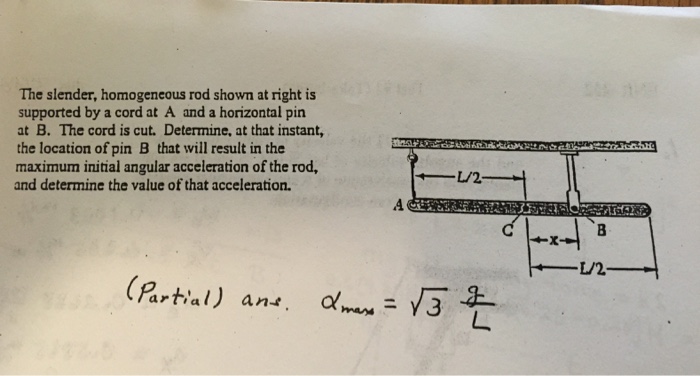 The slender, homogeneous rod shown at right is
supported by a cord at A and a horizontal pin
at B. The cord is cut. Determine, at that instant,
the location of pin B that will result in the
maximum initial angular acceleration of the rod,
and determine the value of that acceleration.
L/2
A
C
B
x
L/2
(Partial) ans. αmax = √3 g/L